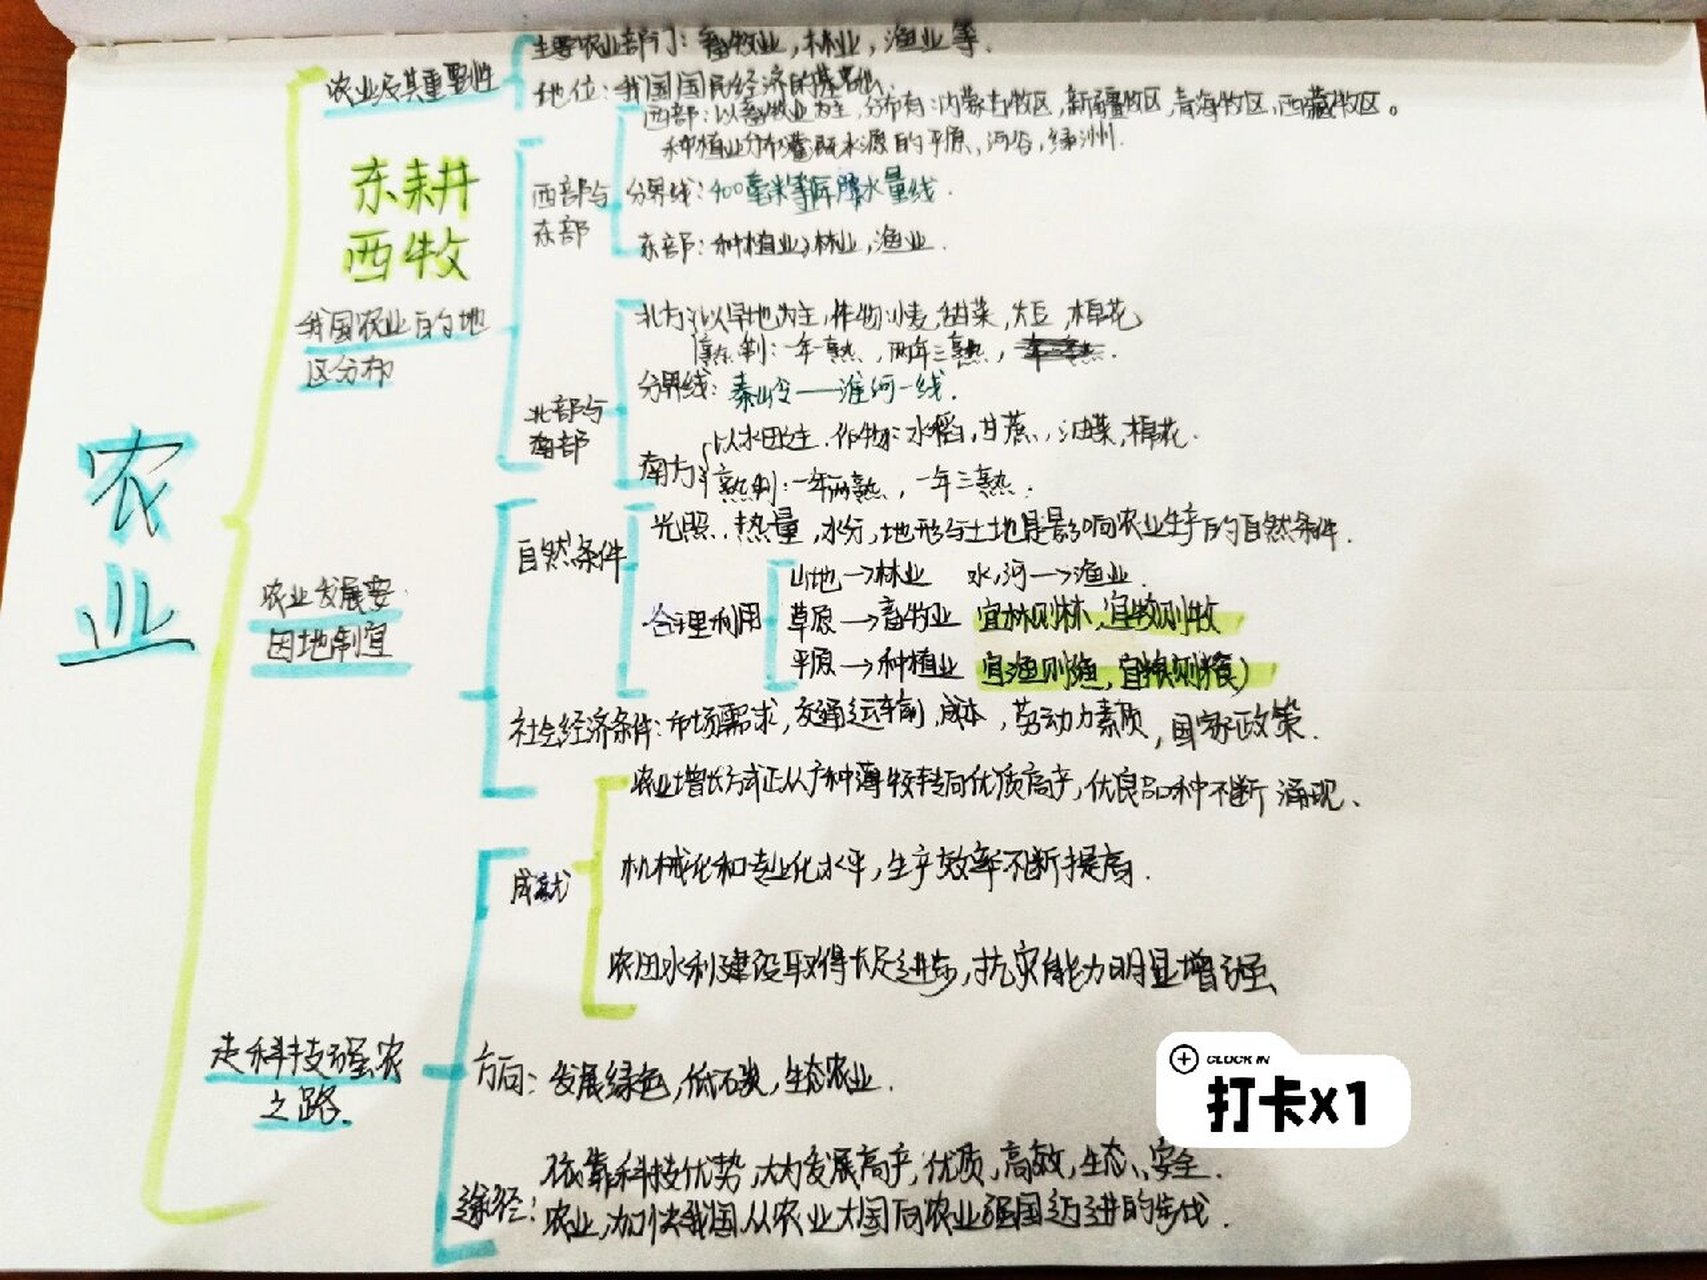 主要农业部门：畜牧业，林业，渔业等.
农业及其重要性
地位：我国国民经济的基础.
西部：以畜牧业为主，分布有：内蒙古牧区，新疆牧区，青海牧区，西藏牧区。
种植业分布灌溉水源的平原，河谷，绿洲.
东耕
西牧
西部与
东部
分界线：400毫米等降水量线.
东部：种植业，林业，渔业.
我国农业的地
区分布
北方：以旱地为主，作物：小麦，油菜，大豆，棉花
熟制：一年一熟，两年三熟，
分界线：秦岭——淮河一线.
北部与
南部
以水田为主.作物：水稻，甘蔗，油菜，棉花.
南方
熟制：一年两熟，一年三熟.
农业
自然条件
光照，热量，水分，地形与土地是影响农业生产的自然条件.
合理利用
山地→林业 水，河→渔业.
草原→畜牧业 宜林则林，宜牧则牧
平原→种植业 宜渔则渔，宜粮则粮）
农业发展要
因地制宜
社会经济条件：市场需求，交通运输，成本，劳动力素质，国家政策.
成就
农业增长方式正从广种薄收转向优质高产，优良品种不断涌现、
机械化和专业化水平，生产效率不断提高.
农田水利建设取得长足进步，抗灾能力明显增强、
走科技强农
之路.
方向：发展绿色，低碳，生态农业.
途径：
依靠科技优势，大力发展高产，优质，高效，生态、安全.
农业，加快我国从农业大国向农业强国迈进的步伐.
CLOCK IN
打卡x1